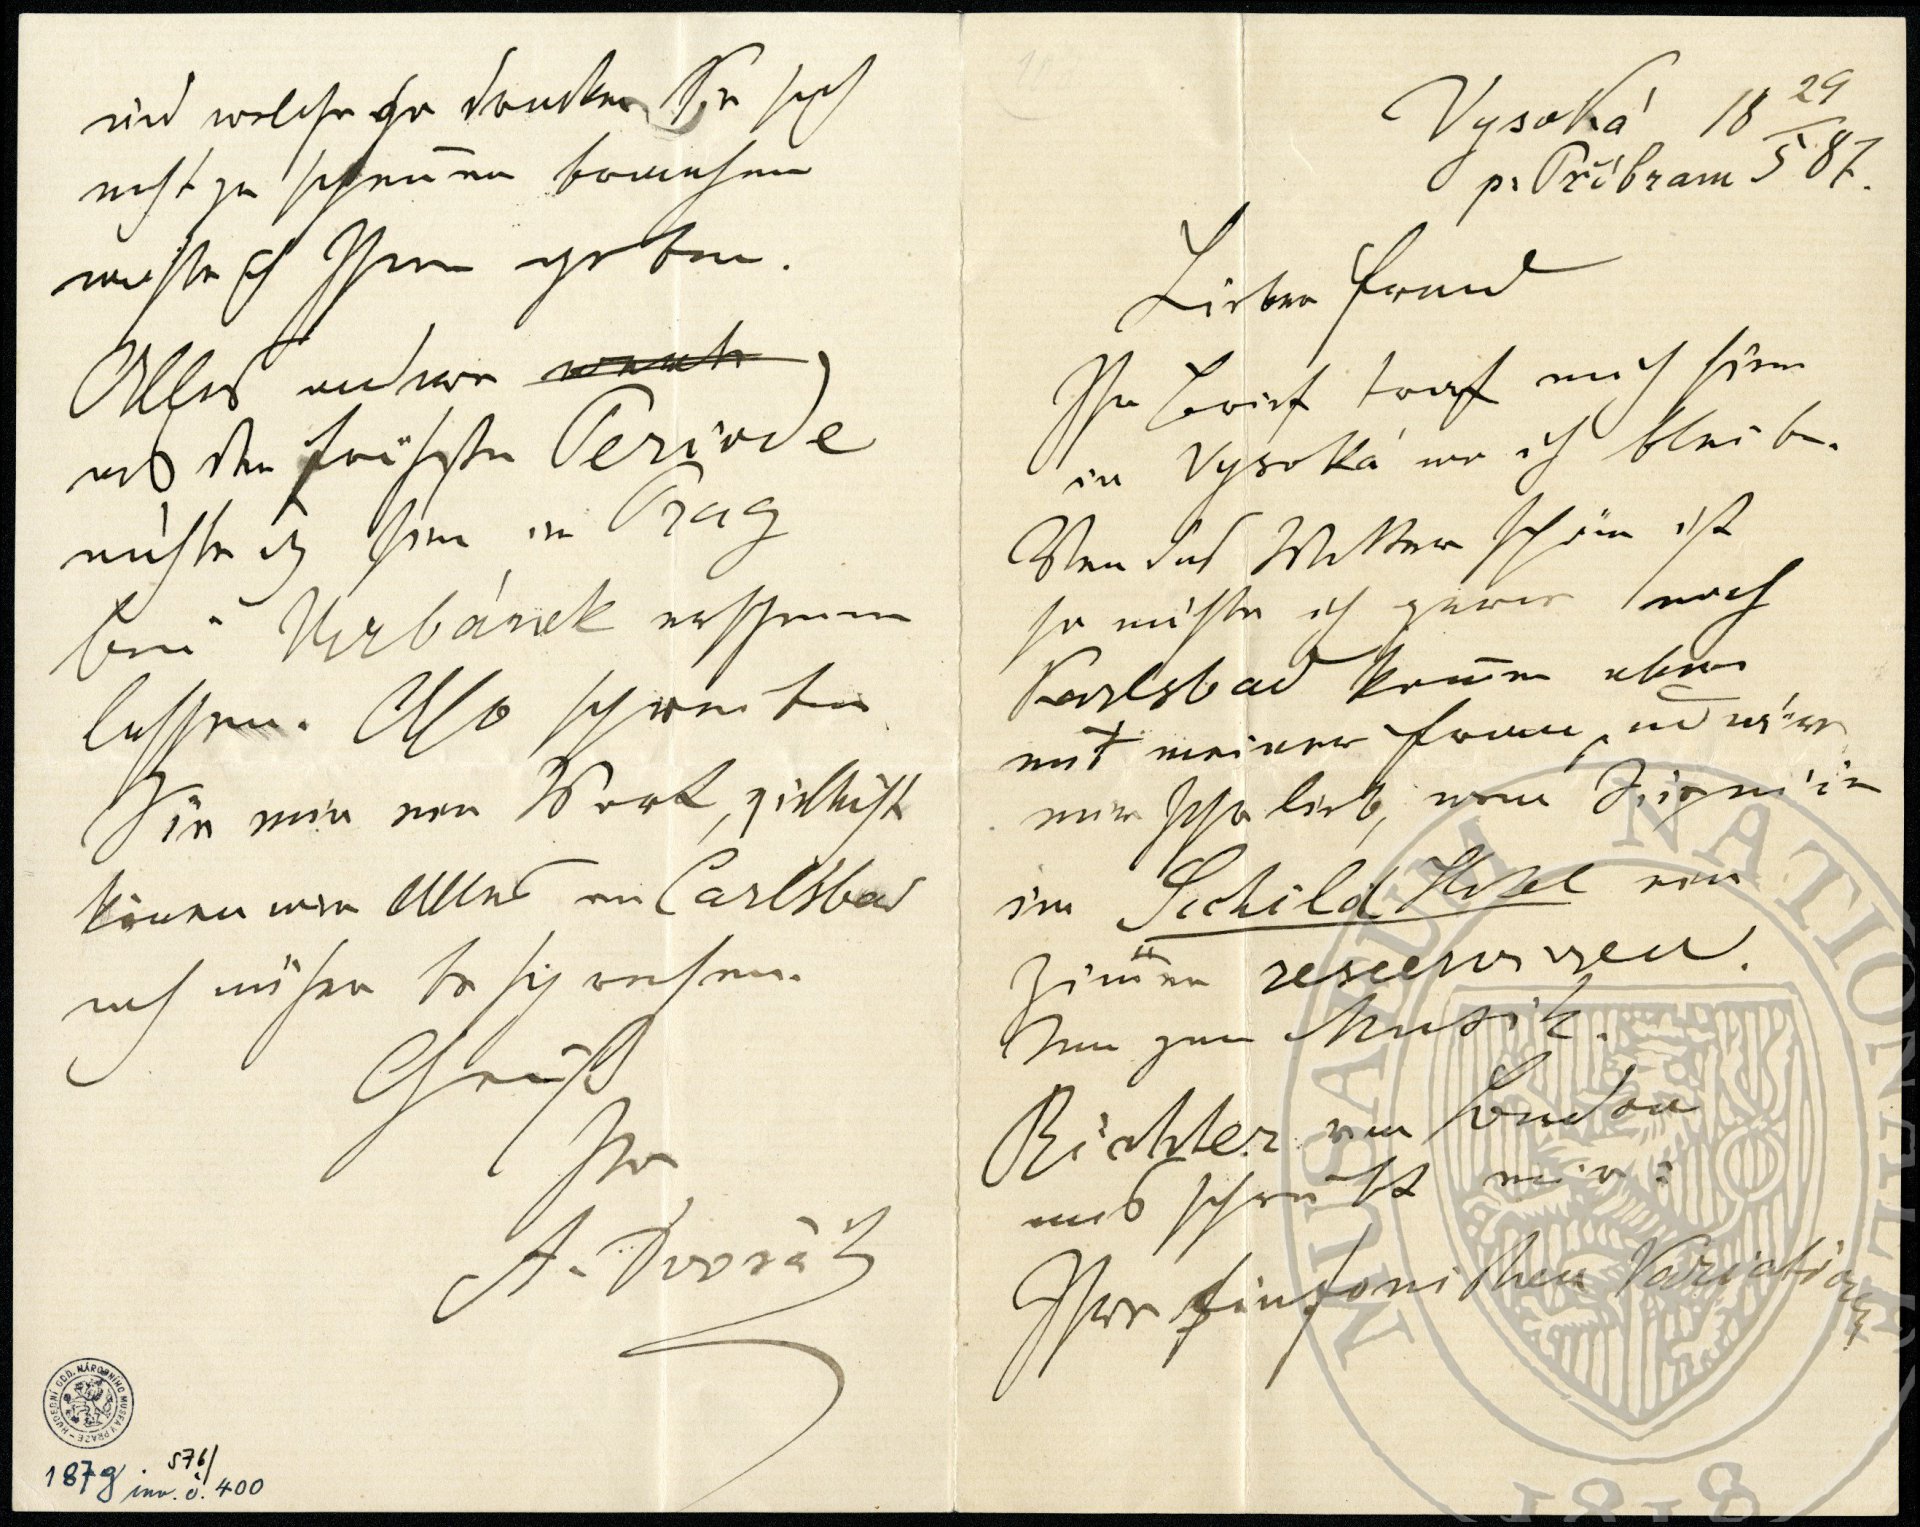 Vysoká 18 29/5 87.
p. Příbram
Lieber Freund
Ihr Brief traf mich hier
in Vysoká wo ich bleibe.
Wen das Wetter schön ist
so möchte ich gerne nach
Karlsbad kom̄en aber
mit meiner Frau, und wäre
mir sehr lieb, wenn Sie mir
im Schild Hotel ein
Zim̄er reserviren.
Nun zum Musik.
Richter von London
aus schreibt mir:
Ihre sinfonischen Variationen
und welcher zu drucken Sie sich
nicht zu schämen brauchen
möchte ich Ihnen geben.
Alles andere
aus der frühesten Periode
möchte ich hier in Prag
bei Urbánek erscheinen
lassen. Also schreiben
Sie mir ein Wort, vielleicht
können wir Alles in Carlsbad
noch näher besprechen.
Gruß
Ihr
A. Dvořák
HUDEBNÍ ODD. NÁRODNÍHO MUSEA V PRAZE
576/
187g inv. č. 400
MUSAEUM NATIONALE
1818